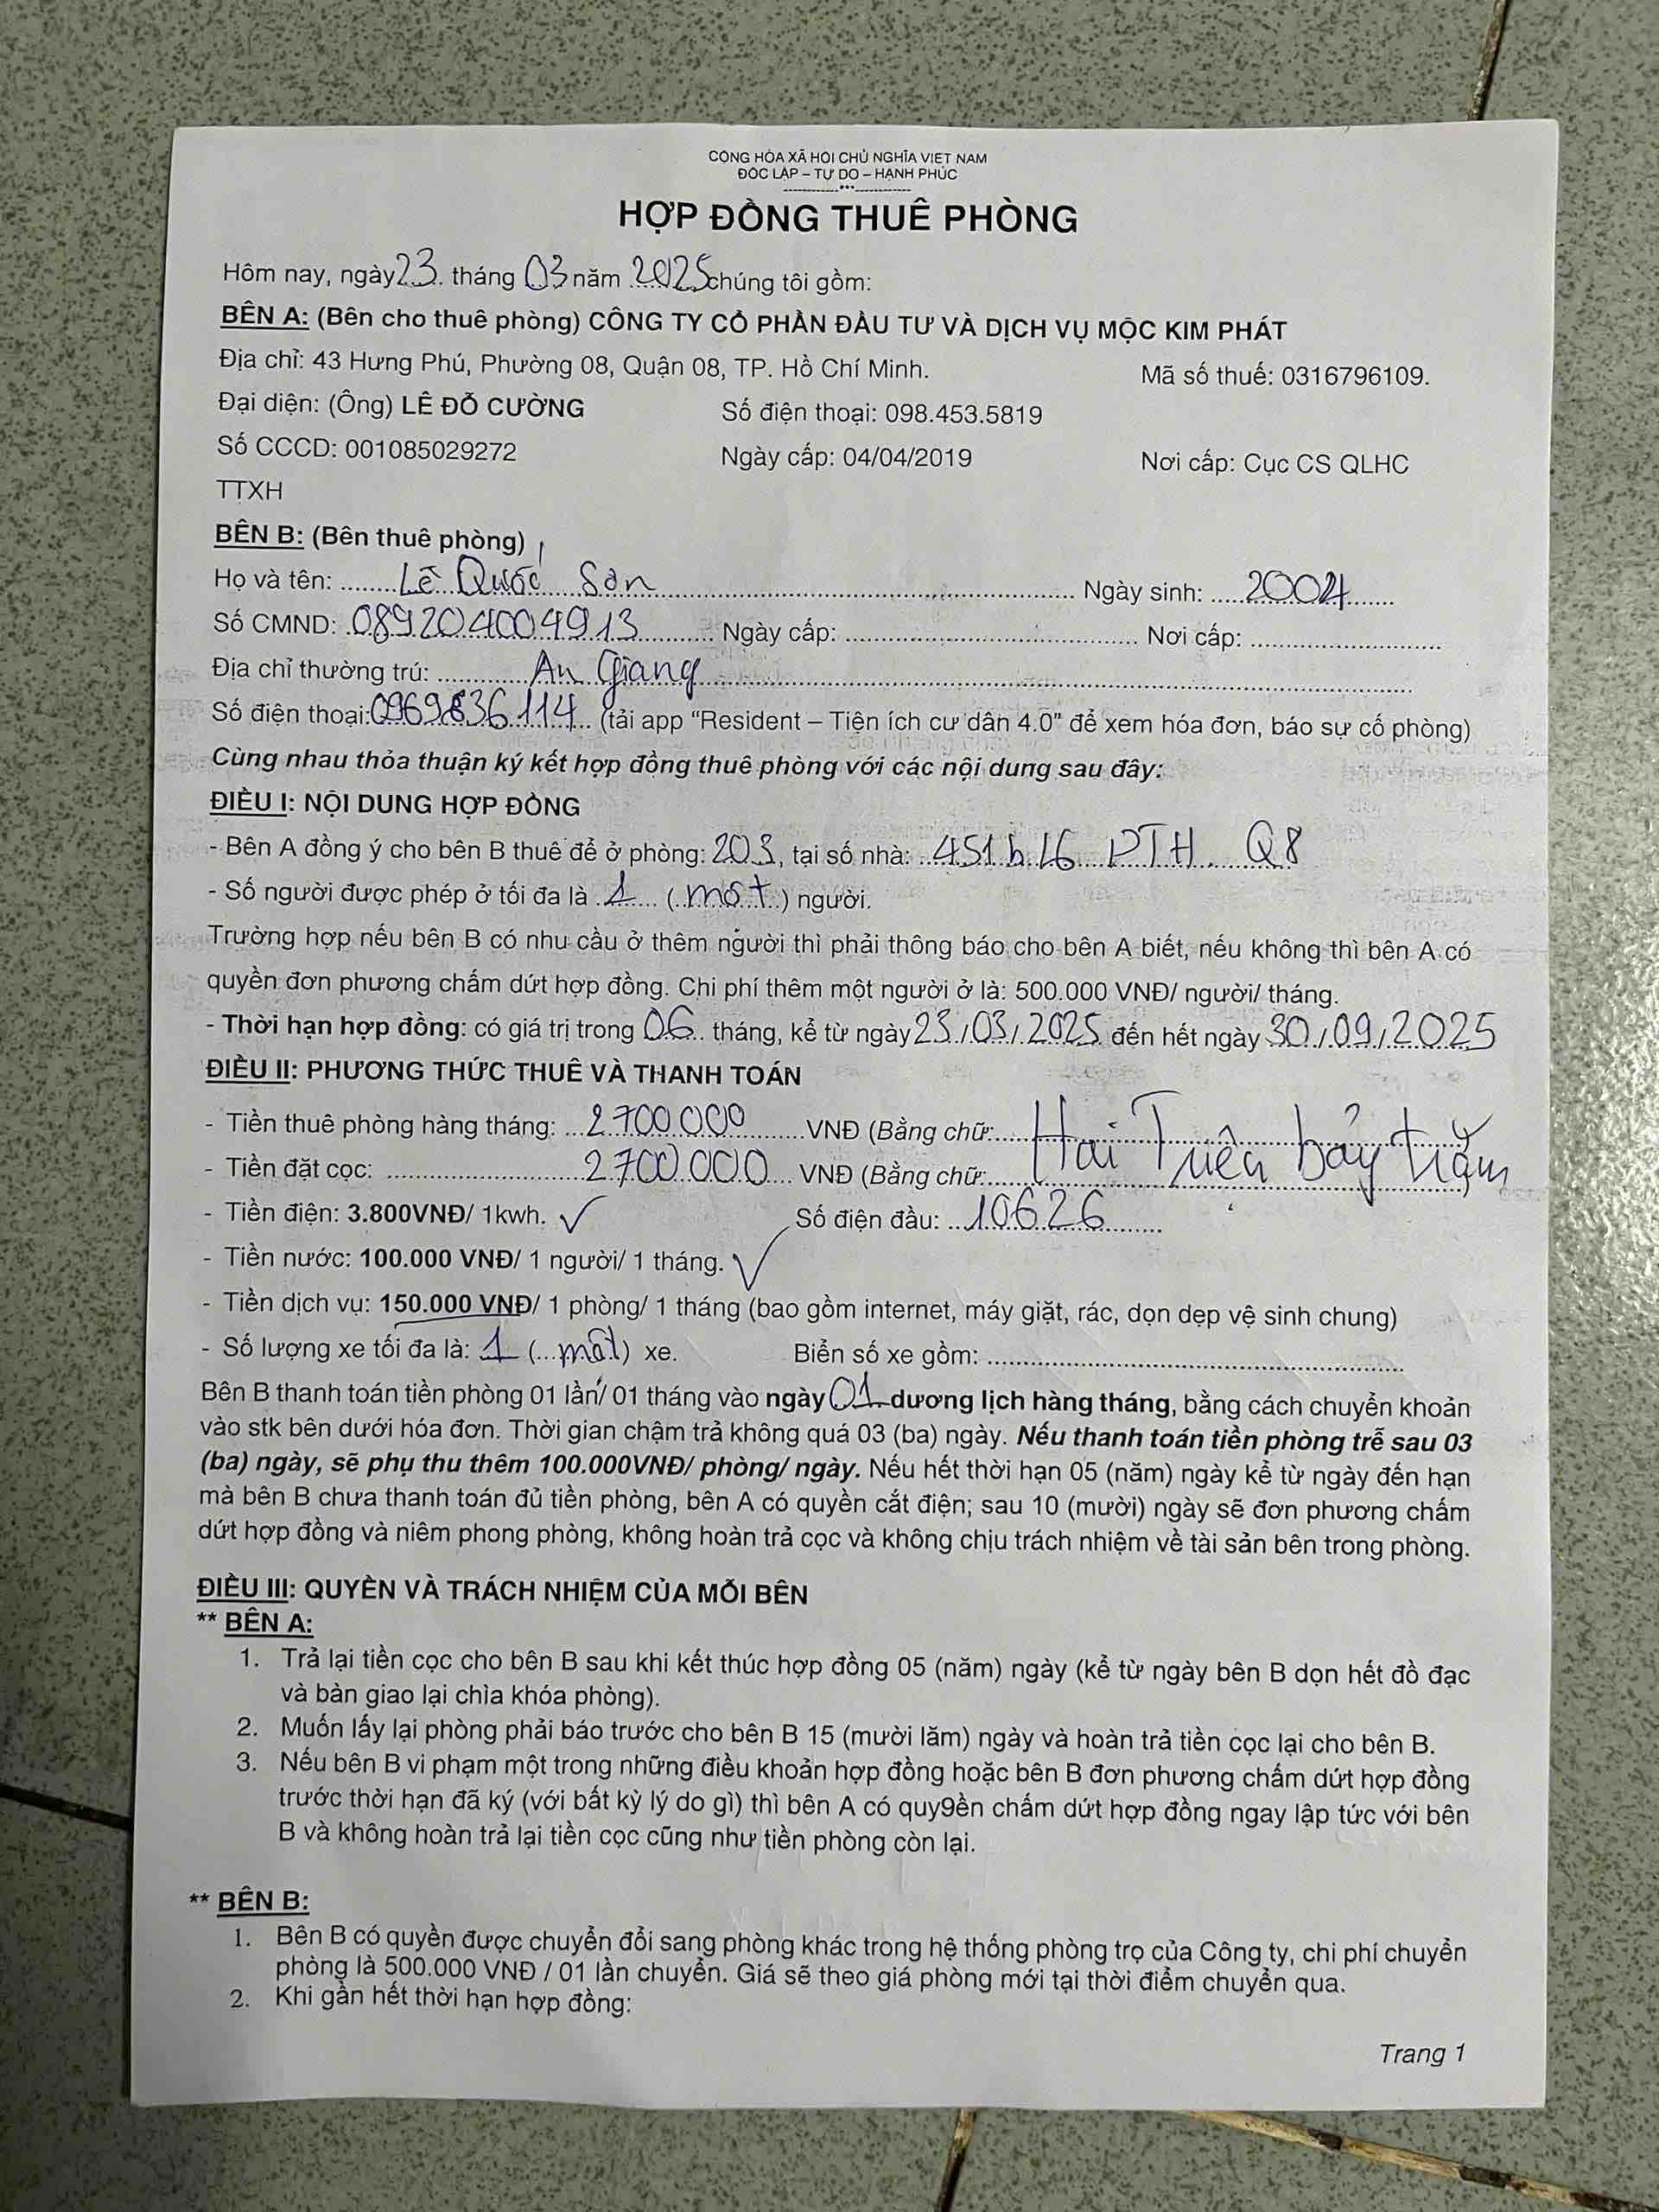 CỘNG HÒA XÃ HỘI CHỦ NGHĨA VIỆT NAM
ĐỘC LẬP – TỰ DO – HẠNH PHÚC
HỢP ĐỒNG THUÊ PHÒNG
Hôm nay, ngày 23 tháng 03 năm 2025 chúng tôi gồm:
BÊN A: (Bên cho thuê phòng) CÔNG TY CỔ PHẦN ĐẦU TƯ VÀ DỊCH VỤ MỘC KIM PHÁT
Địa chỉ: 43 Hưng Phú, Phường 08, Quận 08, TP. Hồ Chí Minh. Mã số thuế: 0316796109.
Đại diện: (Ông) LÊ ĐỖ CƯỜNG Số điện thoại: 098.453.5819
Số CCCD: 001085029272 Ngày cấp: 04/04/2019 Nơi cấp: Cục CS QLHC
TTXH
BÊN B: (Bên thuê phòng)
Họ và tên: Lê Quốc Sơn Ngày sinh: 2004
Số CMND: 089204004913 Ngày cấp: Nơi cấp:
Địa chỉ thường trú: An Giang
Số điện thoại: 0969836114 (tải app “Resident – Tiện ích cư dân 4.0” để xem hóa đơn, báo sự cố phòng)
Cùng nhau thỏa thuận ký kết hợp đồng thuê phòng với các nội dung sau đây:
ĐIỀU I: NỘI DUNG HỢP ĐỒNG
- Bên A đồng ý cho bên B thuê để ở phòng: 203, tại số nhà: 451 b 16 PTH. Q8
- Số người được phép ở tối đa là 1 (một) người.
Trường hợp nếu bên B có nhu cầu ở thêm người thì phải thông báo cho bên A biết, nếu không thì bên A có
quyền đơn phương chấm dứt hợp đồng. Chi phí thêm một người ở là: 500.000 VNĐ/ người/ tháng.
- Thời hạn hợp đồng: có giá trị trong 06 tháng, kể từ ngày 23/03/2025 đến hết ngày 30/09/2025
ĐIỀU II: PHƯƠNG THỨC THUÊ VÀ THANH TOÁN
- Tiền thuê phòng hàng tháng: 2700.000 VNĐ (Bằng chữ: Hai Triệu bảy trăm
- Tiền đặt cọc: 2700.000 VNĐ (Bằng chữ:
- Tiền điện: 3.800VNĐ/ 1kwh. Số điện đầu: 10626
- Tiền nước: 100.000 VNĐ/ 1 người/ 1 tháng.
- Tiền dịch vụ: 150.000 VNĐ/ 1 phòng/ 1 tháng (bao gồm internet, máy giặt, rác, dọn dẹp vệ sinh chung)
- Số lượng xe tối đa là: 1 (một) xe. Biển số xe gồm:
Bên B thanh toán tiền phòng 01 lần/ 01 tháng vào ngày 01 dương lịch hàng tháng, bằng cách chuyển khoản
vào stk bên dưới hóa đơn. Thời gian chậm trả không quá 03 (ba) ngày. Nếu thanh toán tiền phòng trễ sau 03
(ba) ngày, sẽ phụ thu thêm 100.000VNĐ/ phòng/ ngày. Nếu hết thời hạn 05 (năm) ngày kể từ ngày đến hạn
mà bên B chưa thanh toán đủ tiền phòng, bên A có quyền cắt điện; sau 10 (mười) ngày sẽ đơn phương chấm
dứt hợp đồng và niêm phong phòng, không hoàn trả cọc và không chịu trách nhiệm về tài sản bên trong phòng.
ĐIỀU III: QUYỀN VÀ TRÁCH NHIỆM CỦA MỖI BÊN
** BÊN A:
1. Trả lại tiền cọc cho bên B sau khi kết thúc hợp đồng 05 (năm) ngày (kể từ ngày bên B dọn hết đồ đạc
và bàn giao lại chìa khóa phòng).
2. Muốn lấy lại phòng phải báo trước cho bên B 15 (mười lăm) ngày và hoàn trả tiền cọc lại cho bên B.
3. Nếu bên B vi phạm một trong những điều khoản hợp đồng hoặc bên B đơn phương chấm dứt hợp đồng
trước thời hạn đã ký (với bất kỳ lý do gì) thì bên A có quy9ền chấm dứt hợp đồng ngay lập tức với bên
B và không hoàn trả lại tiền cọc cũng như tiền phòng còn lại.
** BÊN B:
1. Bên B có quyền được chuyển đổi sang phòng khác trong hệ thống phòng trọ của Công ty, chi phí chuyển
phòng là 500.000 VNĐ / 01 lần chuyển. Giá sẽ theo giá phòng mới tại thời điểm chuyển qua.
2. Khi gần hết thời hạn hợp đồng:
Trang 1